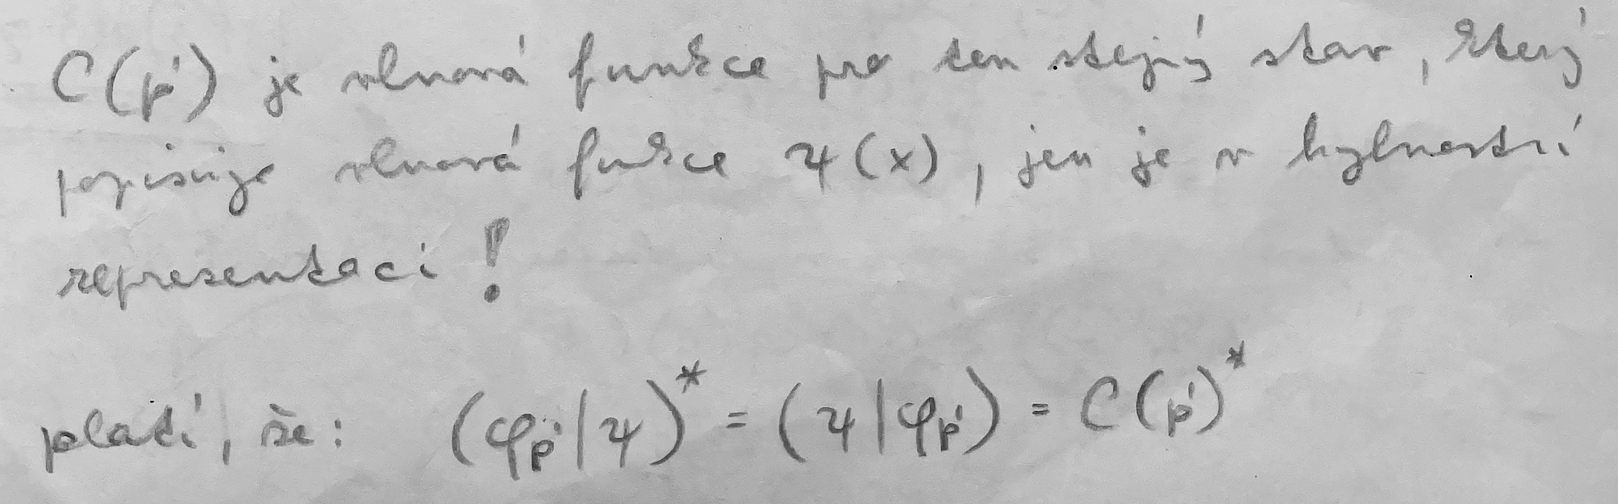 C(p') je vlnová funkce pro ten stejný stav, který
popisuje vlnová fukce ψ(x), jen je v hybnostní
representaci!
platí, že: (φp'|ψ)* = (ψ|φp') = C(p')*